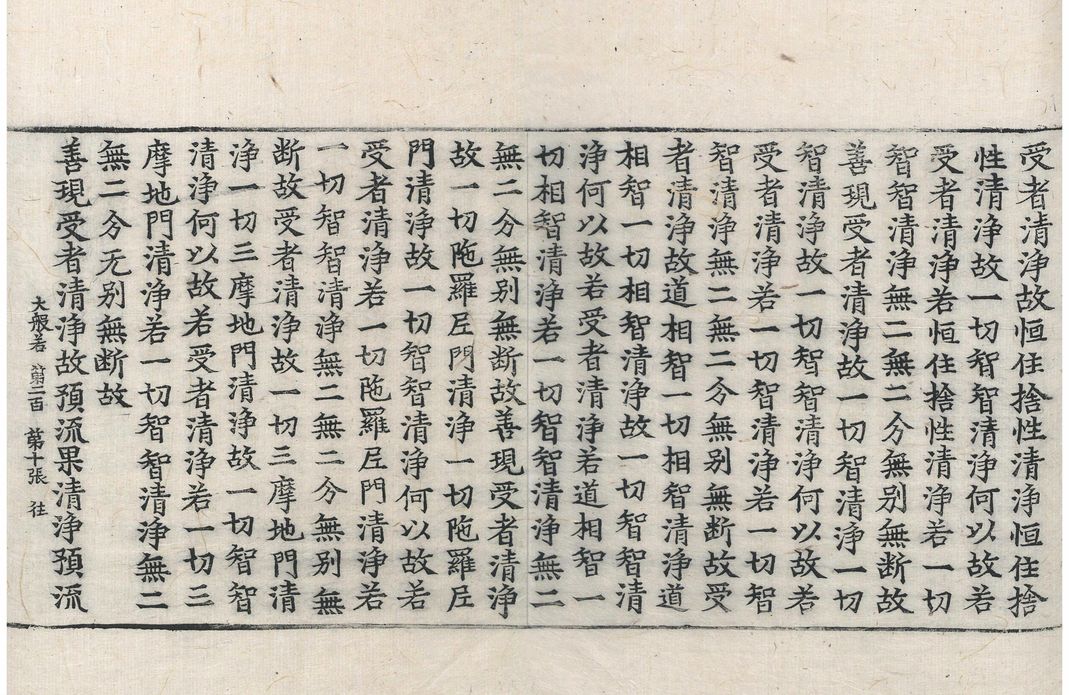 受者清浄故恒住捨性清浄恒住捨
性清浄故一切智智清浄何以故若
受者清浄若恒住捨性清浄若一切
智智清浄無二無二分無别無断故
善現受者清浄故一切智清浄一切
智清浄故一切智智清浄何以故若
受者清浄若一切智清浄若一切智
智清浄無二無二分無别無断故受
者清浄故道相智一切相智清浄道
相智一切相智清浄故一切智智清
浄何以故若受者清浄若道相智一
切相智清浄若一切智智清浄無二
無二分無别無断故善現受者清浄
故一切陁羅尼門清浄一切陁羅尼
門清浄故一切智智清浄何以故若
受者清浄若一切陁羅尼門清浄若
一切智智清浄無二無二分無别無
断故受者清浄故一切三摩地門清
浄一切三摩地門清浄故一切智智
清浄何以故若受者清浄若一切三
摩地門清浄若一切智智清浄無二
無二分无别無断故
善現受者清浄故預流果清浄預流
大般若 第二百 第十張 往